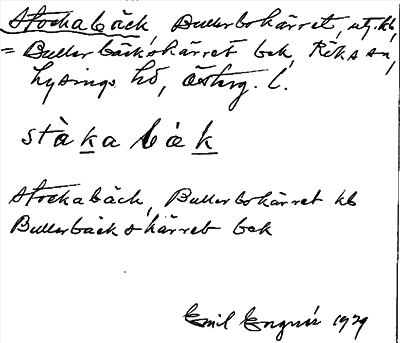 Stockabäck, Bullerbokärret, utj. kb,
= Bullerbäckskärret bek, Röks sn,
Lysings hd, Österg. l.
stàka bák
Stockabäck, Bullerbokärret kb
Bullerbäckskärret bek
Emil Engnér 1929